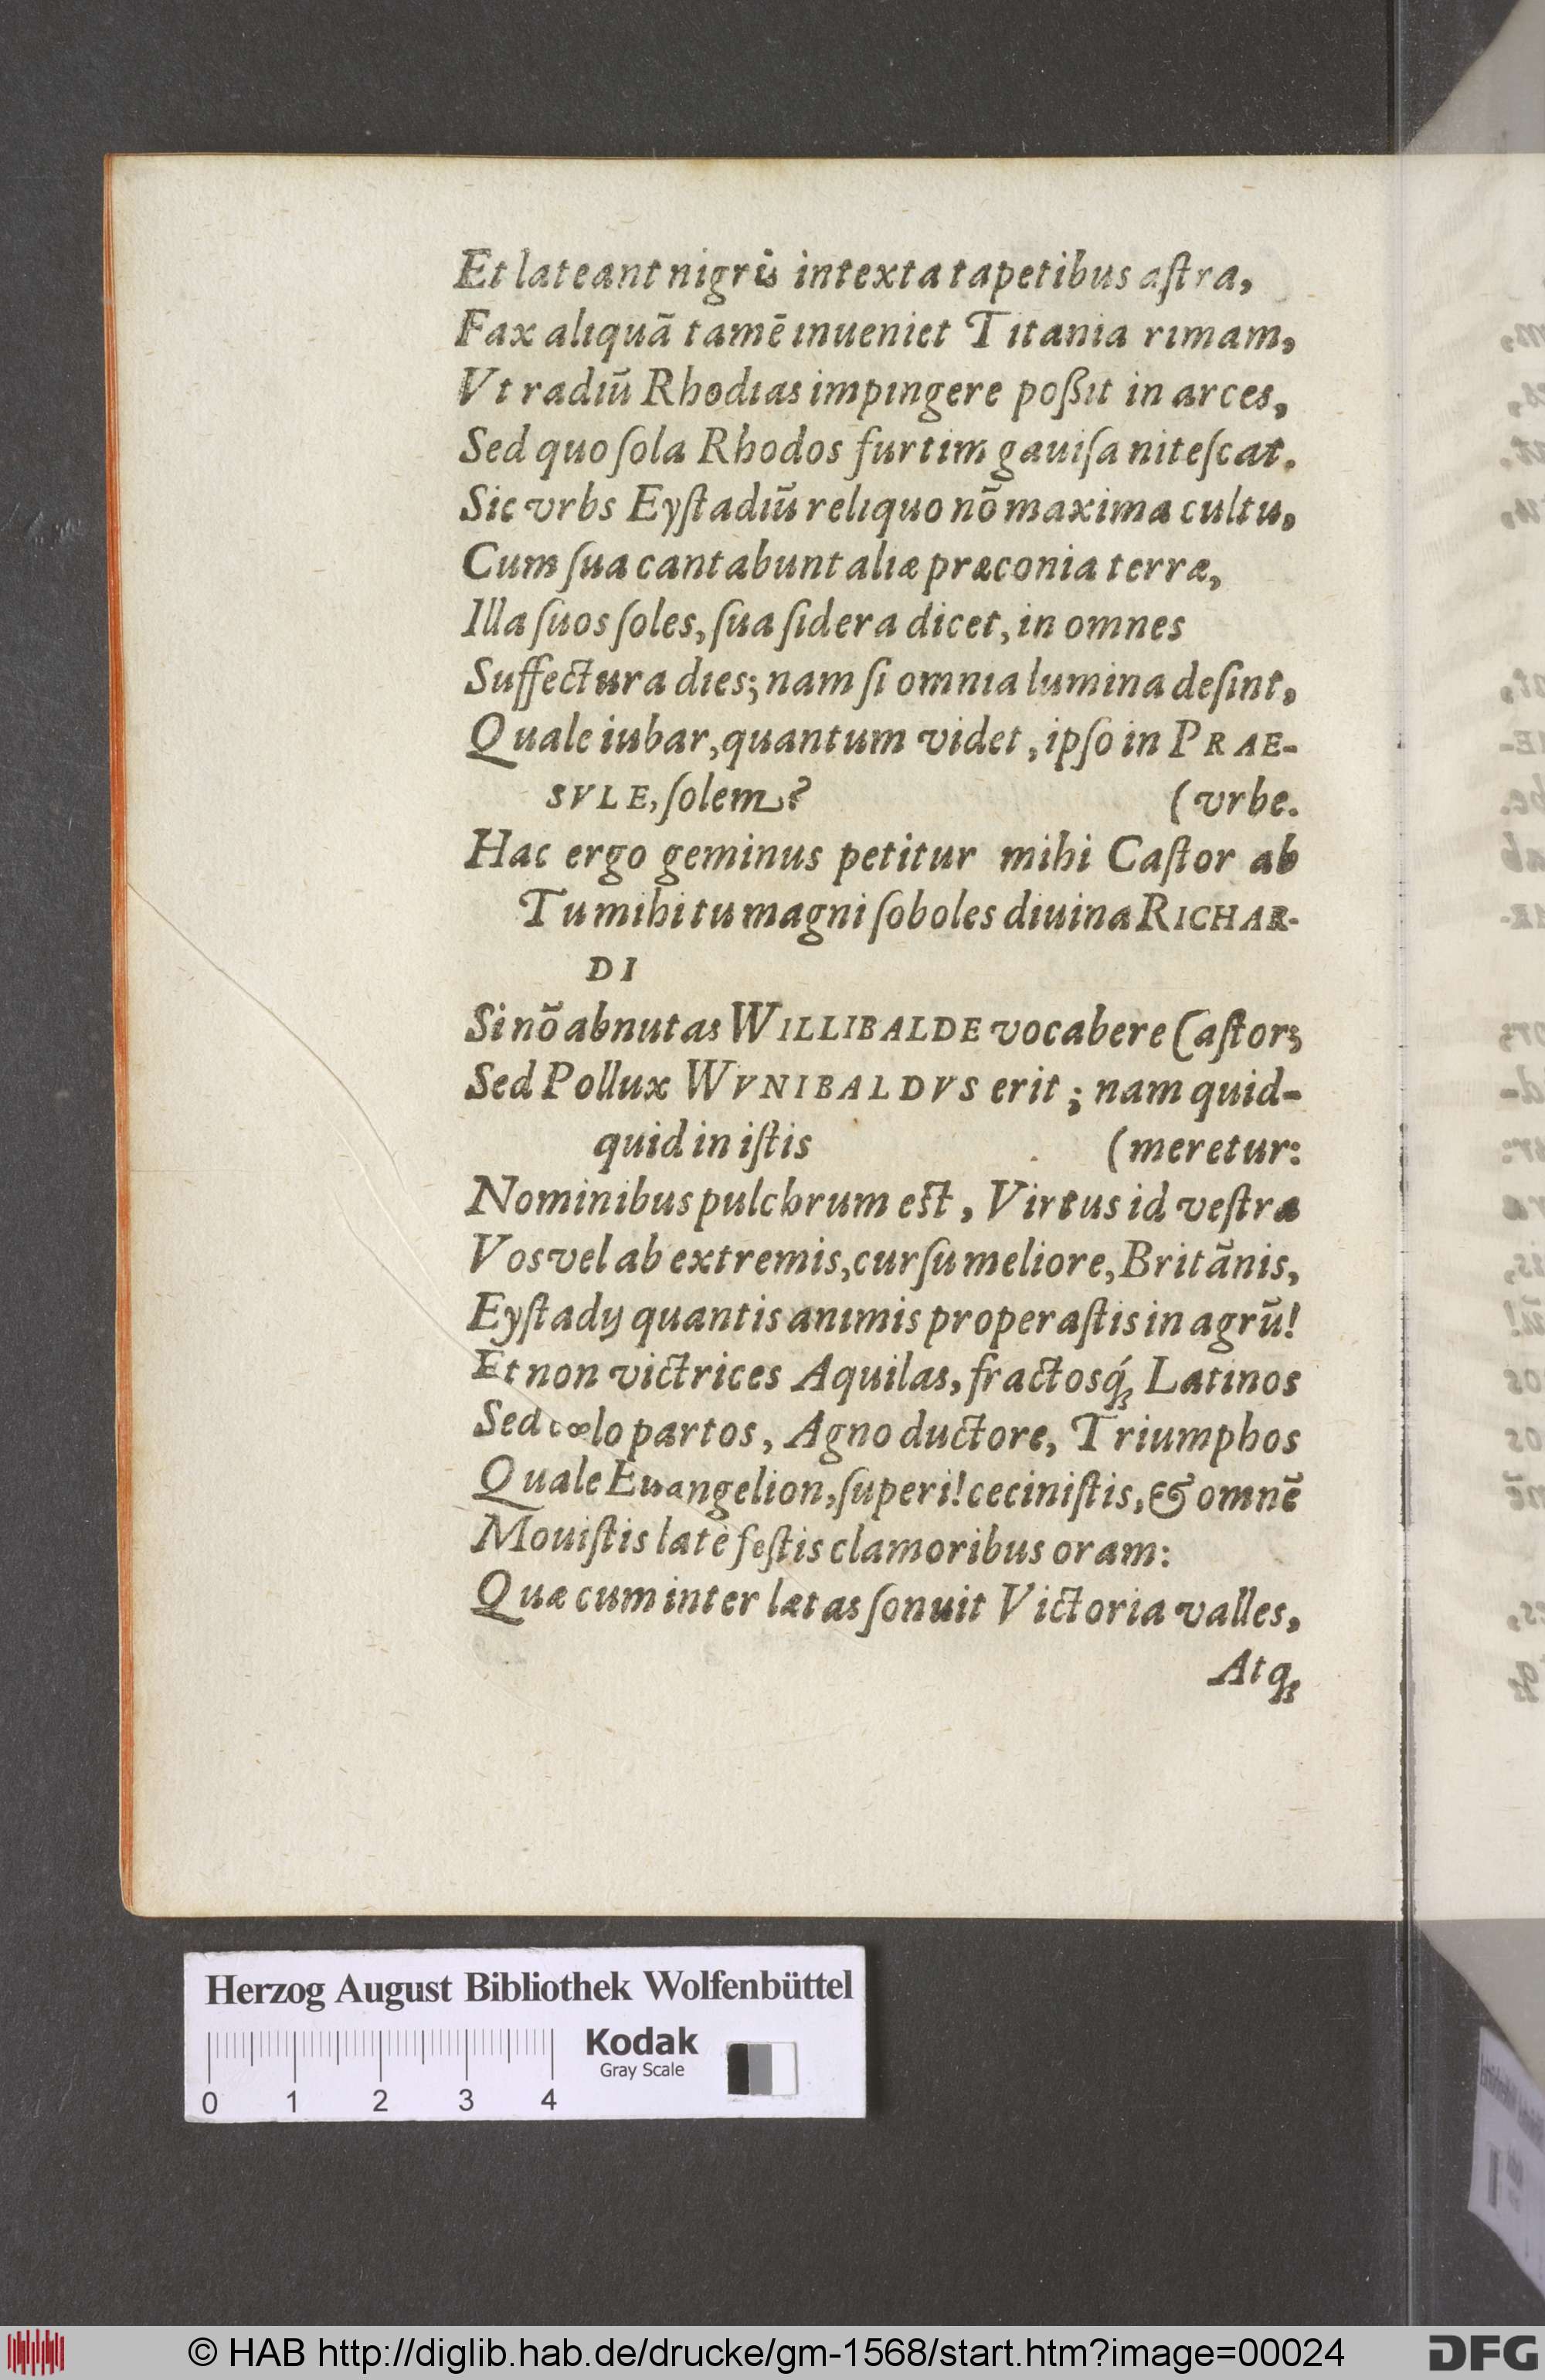 Et lateant nigris intexta tapetibus aſtra,
Fax aliquã tamẽ inueniet Titania rimam,
Vt radiũ Rhodias impingere poßit in arces,
Sed quo ſola Rhodos furtim gauiſa niteſcat.
Sic vrbs Eyſtadiũ reliquo nõ maxima cultu,
Cum ſua cantabunt aliæ præconia terræ,
Illa ſuos ſoles, ſua ſidera dicet, in omnes
Suffectura dies; nam ſi omnia lumina deſint,
Quale iubar, quantum videt, ipſo in PRAE-
SVLE, ſolem?
(vrbe.
Hac ergo geminus petitur mihi Caſtor ab
Tu mihi tu magni ſoboles diuina RICHAR-
DI
Si nõ abnutas WILLIBALDE vocabere Caſtor;
Sed Pollux WVNIBALDVS erit; nam quid-
quid in iſtis
(meretur:
Nominibus pulchrum eſt, Virtus id veſtra
Vos vel ab extremis, curſu meliore, Britãnis,
Eyſtadij quantis animis properaſtis in agrũ!
Et non victrices Aquilas, fractosq́; Latinos
Sed cœlo partos, Agno ductore, Triumphos
Quale Euangelion, ſuperi! ceciniſtis, & omnẽ
Mouiſtis latè feſtis clamoribus oram:
Quæ cum inter lætas ſonuit Victoria valles,
Atq;
Herzog August Bibliothek Wolfenbüttel
Kodak
Gray Scale
0 1 2 3 4
© HAB http://diglib.hab.de/drucke/gm-1568/start.htm?image=00024
DFG